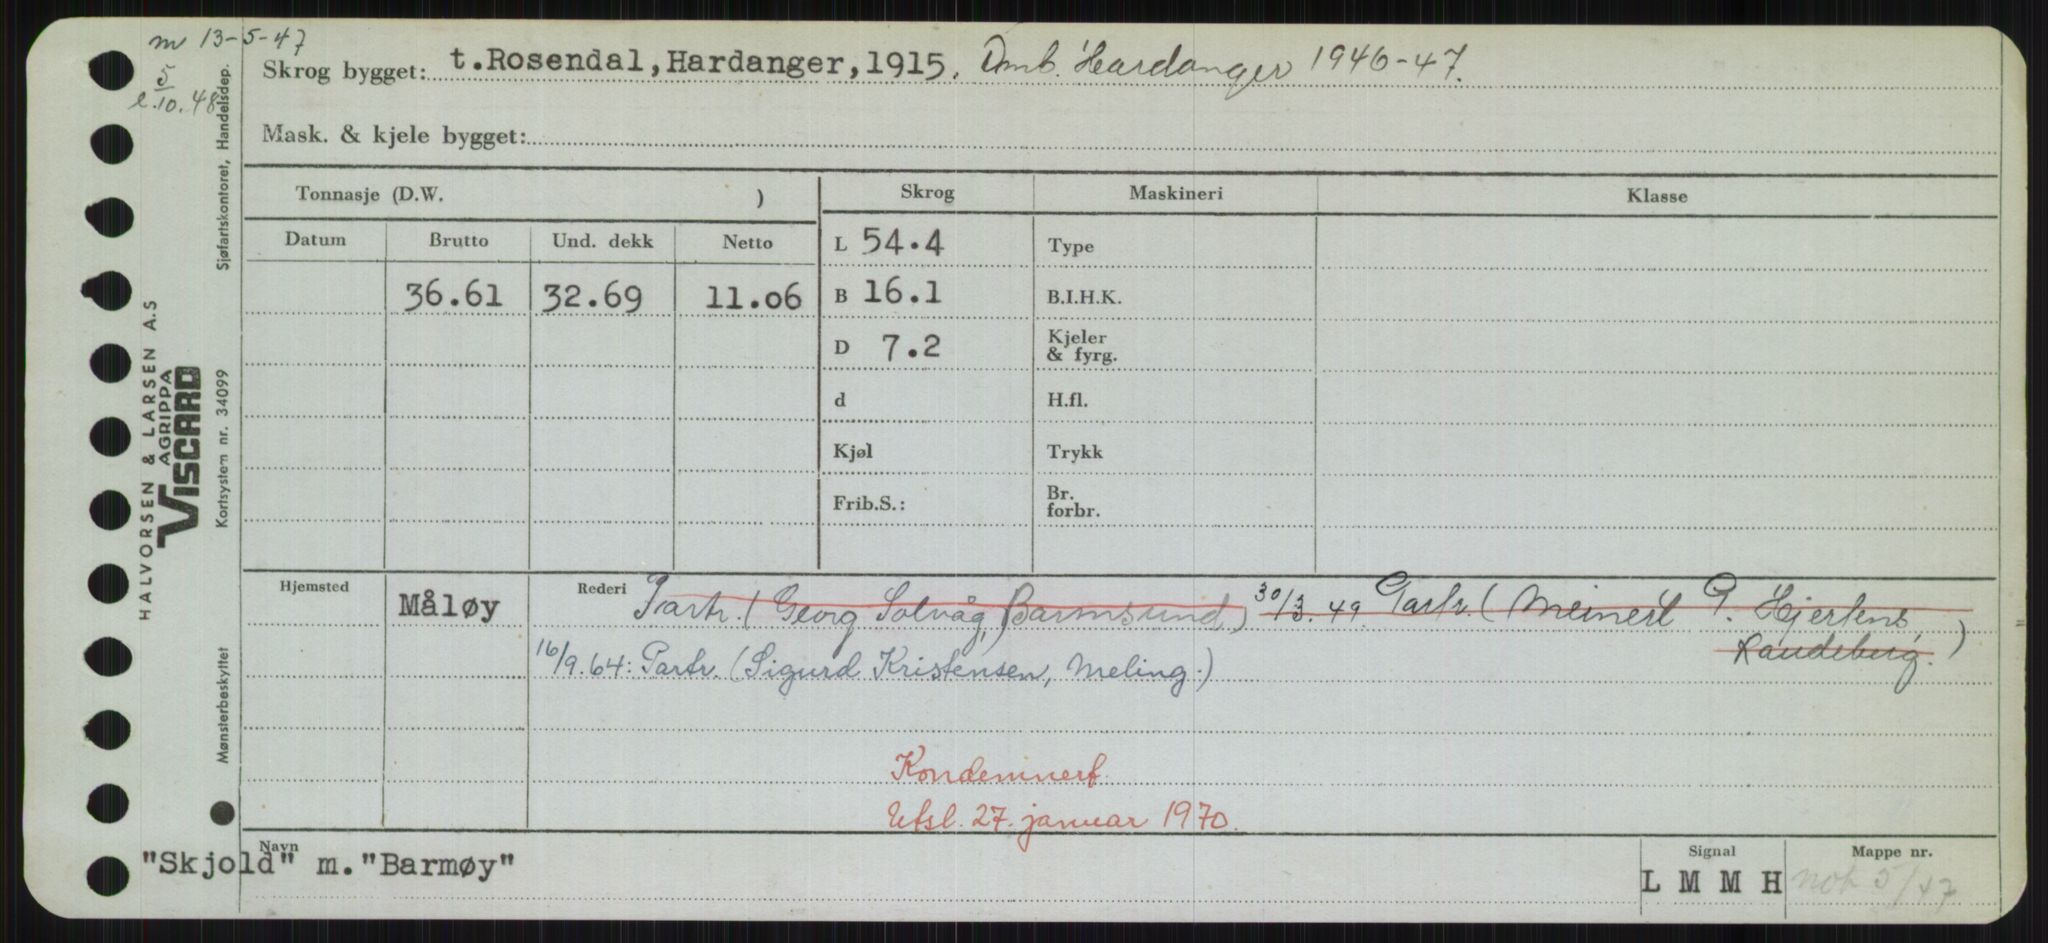 m 13-5-47
5
e.10.48
Skrog bygget: t.Rosendal, Hardanger, 1915. Omb. Hardanger 1946-47.
Mask. & kjele bygget:
Tonnasje (D.W. )
Skrog Maskineri Klasse
Datum Brutto Und. dekk Netto
L 54.4 Type
36.61 32.69 11.06 B 16.1 B.I.H.K.
D 7.2 Kjeler
& fyrg.
d H.fl.
Kjøl Trykk
Frib.S.: Br.
forbr.
Hjemsted Måløy Rederi Partr. (Georg Solvåg, Barmsund) 30/3.49 Partr. (Meinert P. Hjertenes
Raudeberg.)
16/9.64: Partr. (Sigurd Kristensen, Meling.)
Kondemnert
Utsl. 27. januar 1970.
Navn Signal Mappe nr.
"Skjold" m."Barmøy" L M M H not 5/47
HALVORSEN & LARSEN A.S
AGRIPPA
VISCARD
Mønsterbeskyttet Kortsystem nr. 34099 Sjøfartskontoret, Handelsdep.